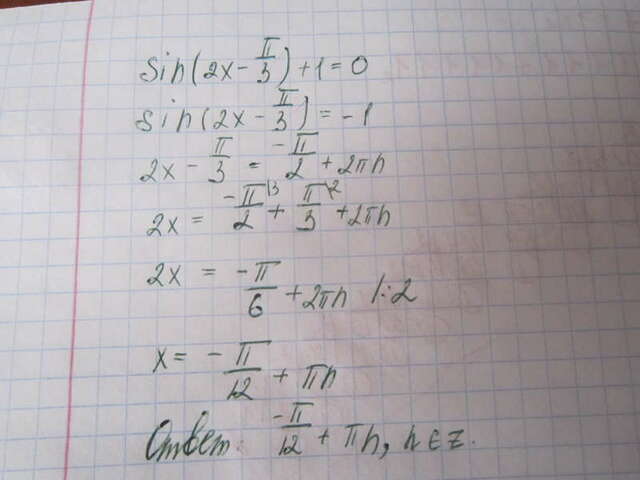 sin(2x - π/3) + 1 = 0
sin(2x - π/3) = -1
2x - π/3 = -π/2 + 2πn
2x = -π/2 \3 + π/3 \2 + 2πn
2x = -π/6 + 2πn |:2
x = -π/12 + πn
Ответ: -π/12 + πn, n ∈ z.